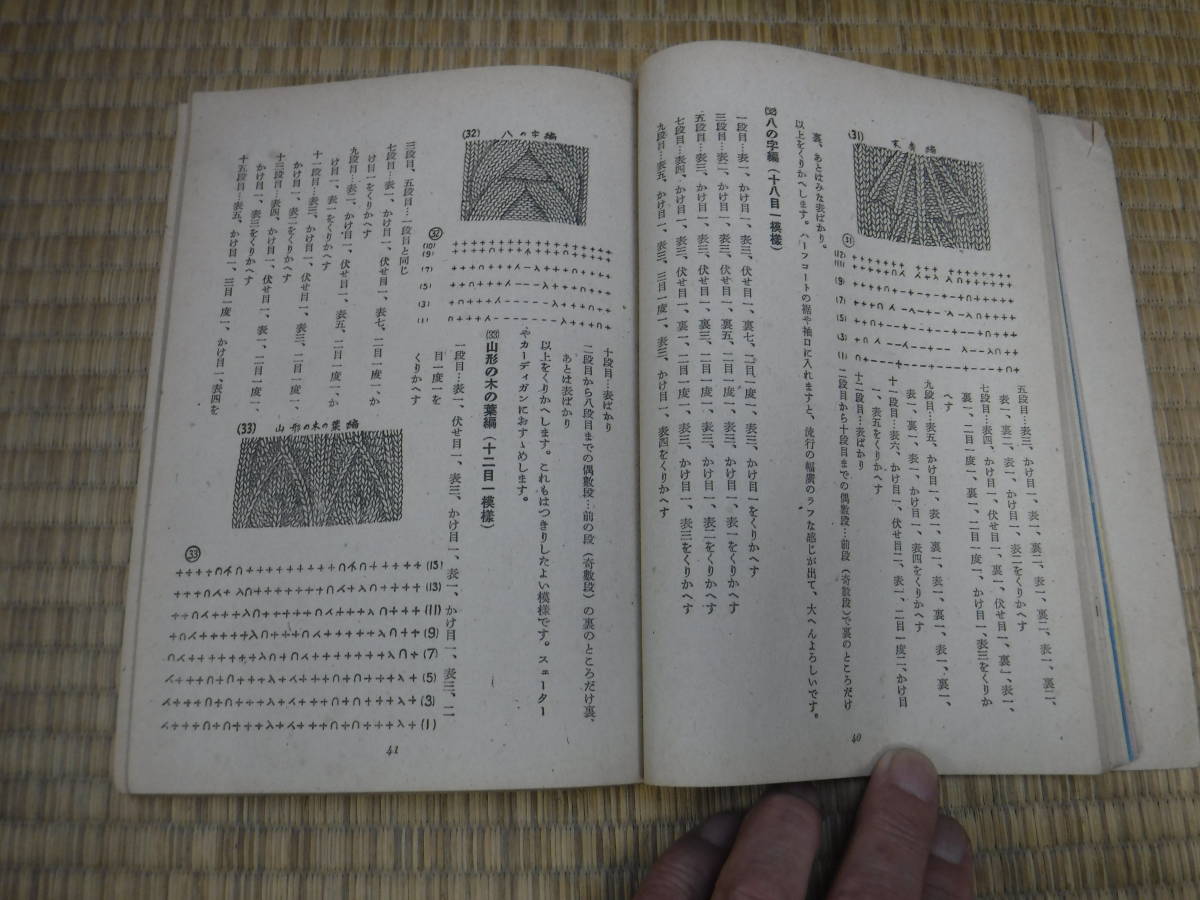 (31)
末廣編
㉛
五段目…表三、かけ目一、表一、裏二、表一、裏二、表一、裏二、
表一、裏二、表一、かけ目一、表二をくりかへす
七段目…表四、かけ目一、伏せ目一、裏一、伏せ目一、裏一、表一、
裏一、二目一度一、裏一、二目一度一、かけ目一、表三をくりか
へす
九段目…表五、かけ目一、表一、裏一、表一、裏一、表一、裏一、
表一、裏一、表一、かけ目一、表四をくりかへす
十一段目…表六、かけ目一、伏せ目二、表一、二目一度二、かけ目
一、表五をくりかへす
十二段目…表ばかり
二段目から十段目までの偶數段…前段（奇數段）で裏のところだけ
裏、あとはみな表ばかり。
以上をくりかへします。ハーフコートの裾や袖口に入れますと、流行の幅廣のラフな感じが出て、大へんよろしいです。
㉜八の字編（十八目一模樣）
一段目…表一、かけ目一、表三、伏せ目一、裏七、二目一度一、表三、かけ目一をくりかへす
三段目…表二、かけ目一、表三、伏せ目一、裏五、二目一度一、表三、かけ目一、表一をくりかへす
五段目…表三、かけ目一、表三、伏せ目一、裏三、二目一度一、表三、かけ目一、表二をくりかへす
七段目…表四、かけ目一、表三、伏せ目一、裏一、二目一度一、表三、かけ目一、表三をくりかへす
九段目…表五、かけ目一、表三、三目一度一、表三、かけ目一、表四をくりかへす
40
十段目…表ばかり
二段目から八段目までの偶數段…前の段（奇數段）の裏のところだけ裏、
あとは表ばかり
以上をくりかへします。これもはつきりしたよい模樣です。スェーター
やカーディガンにおすゝめします。
㉝山形の木の葉編（十二目一模樣）
一段目…表一、伏せ目一、表三、かけ目一、表一、かけ目一、表三、二
目一度一を
くりかへす
(32)
八の字編
㉜
三段目、五段目…一段目と同じ
七段目…表一、かけ目一、伏せ目一、表七、二目一度一、か
け目一をくりかへす
九段目…表二、かけ目一、伏せ目一、表五、二目一度一、か
け目一、表一をくりかへす
十一段目…表三、かけ目一、伏せ目一、表三、二目一度一、
かけ目一、表二をくりかへす
十三段目…表四、かけ目一、伏せ目一、表一、二目一度一、
かけ目一、表三をくりかへす
十五段目…表五、かけ目一、三目一度一、かけ目一、表四を
(33)
山形の木の葉編
㉝
(15)
(13)
(11)
(9)
(7)
(5)
(3)
(1)
41